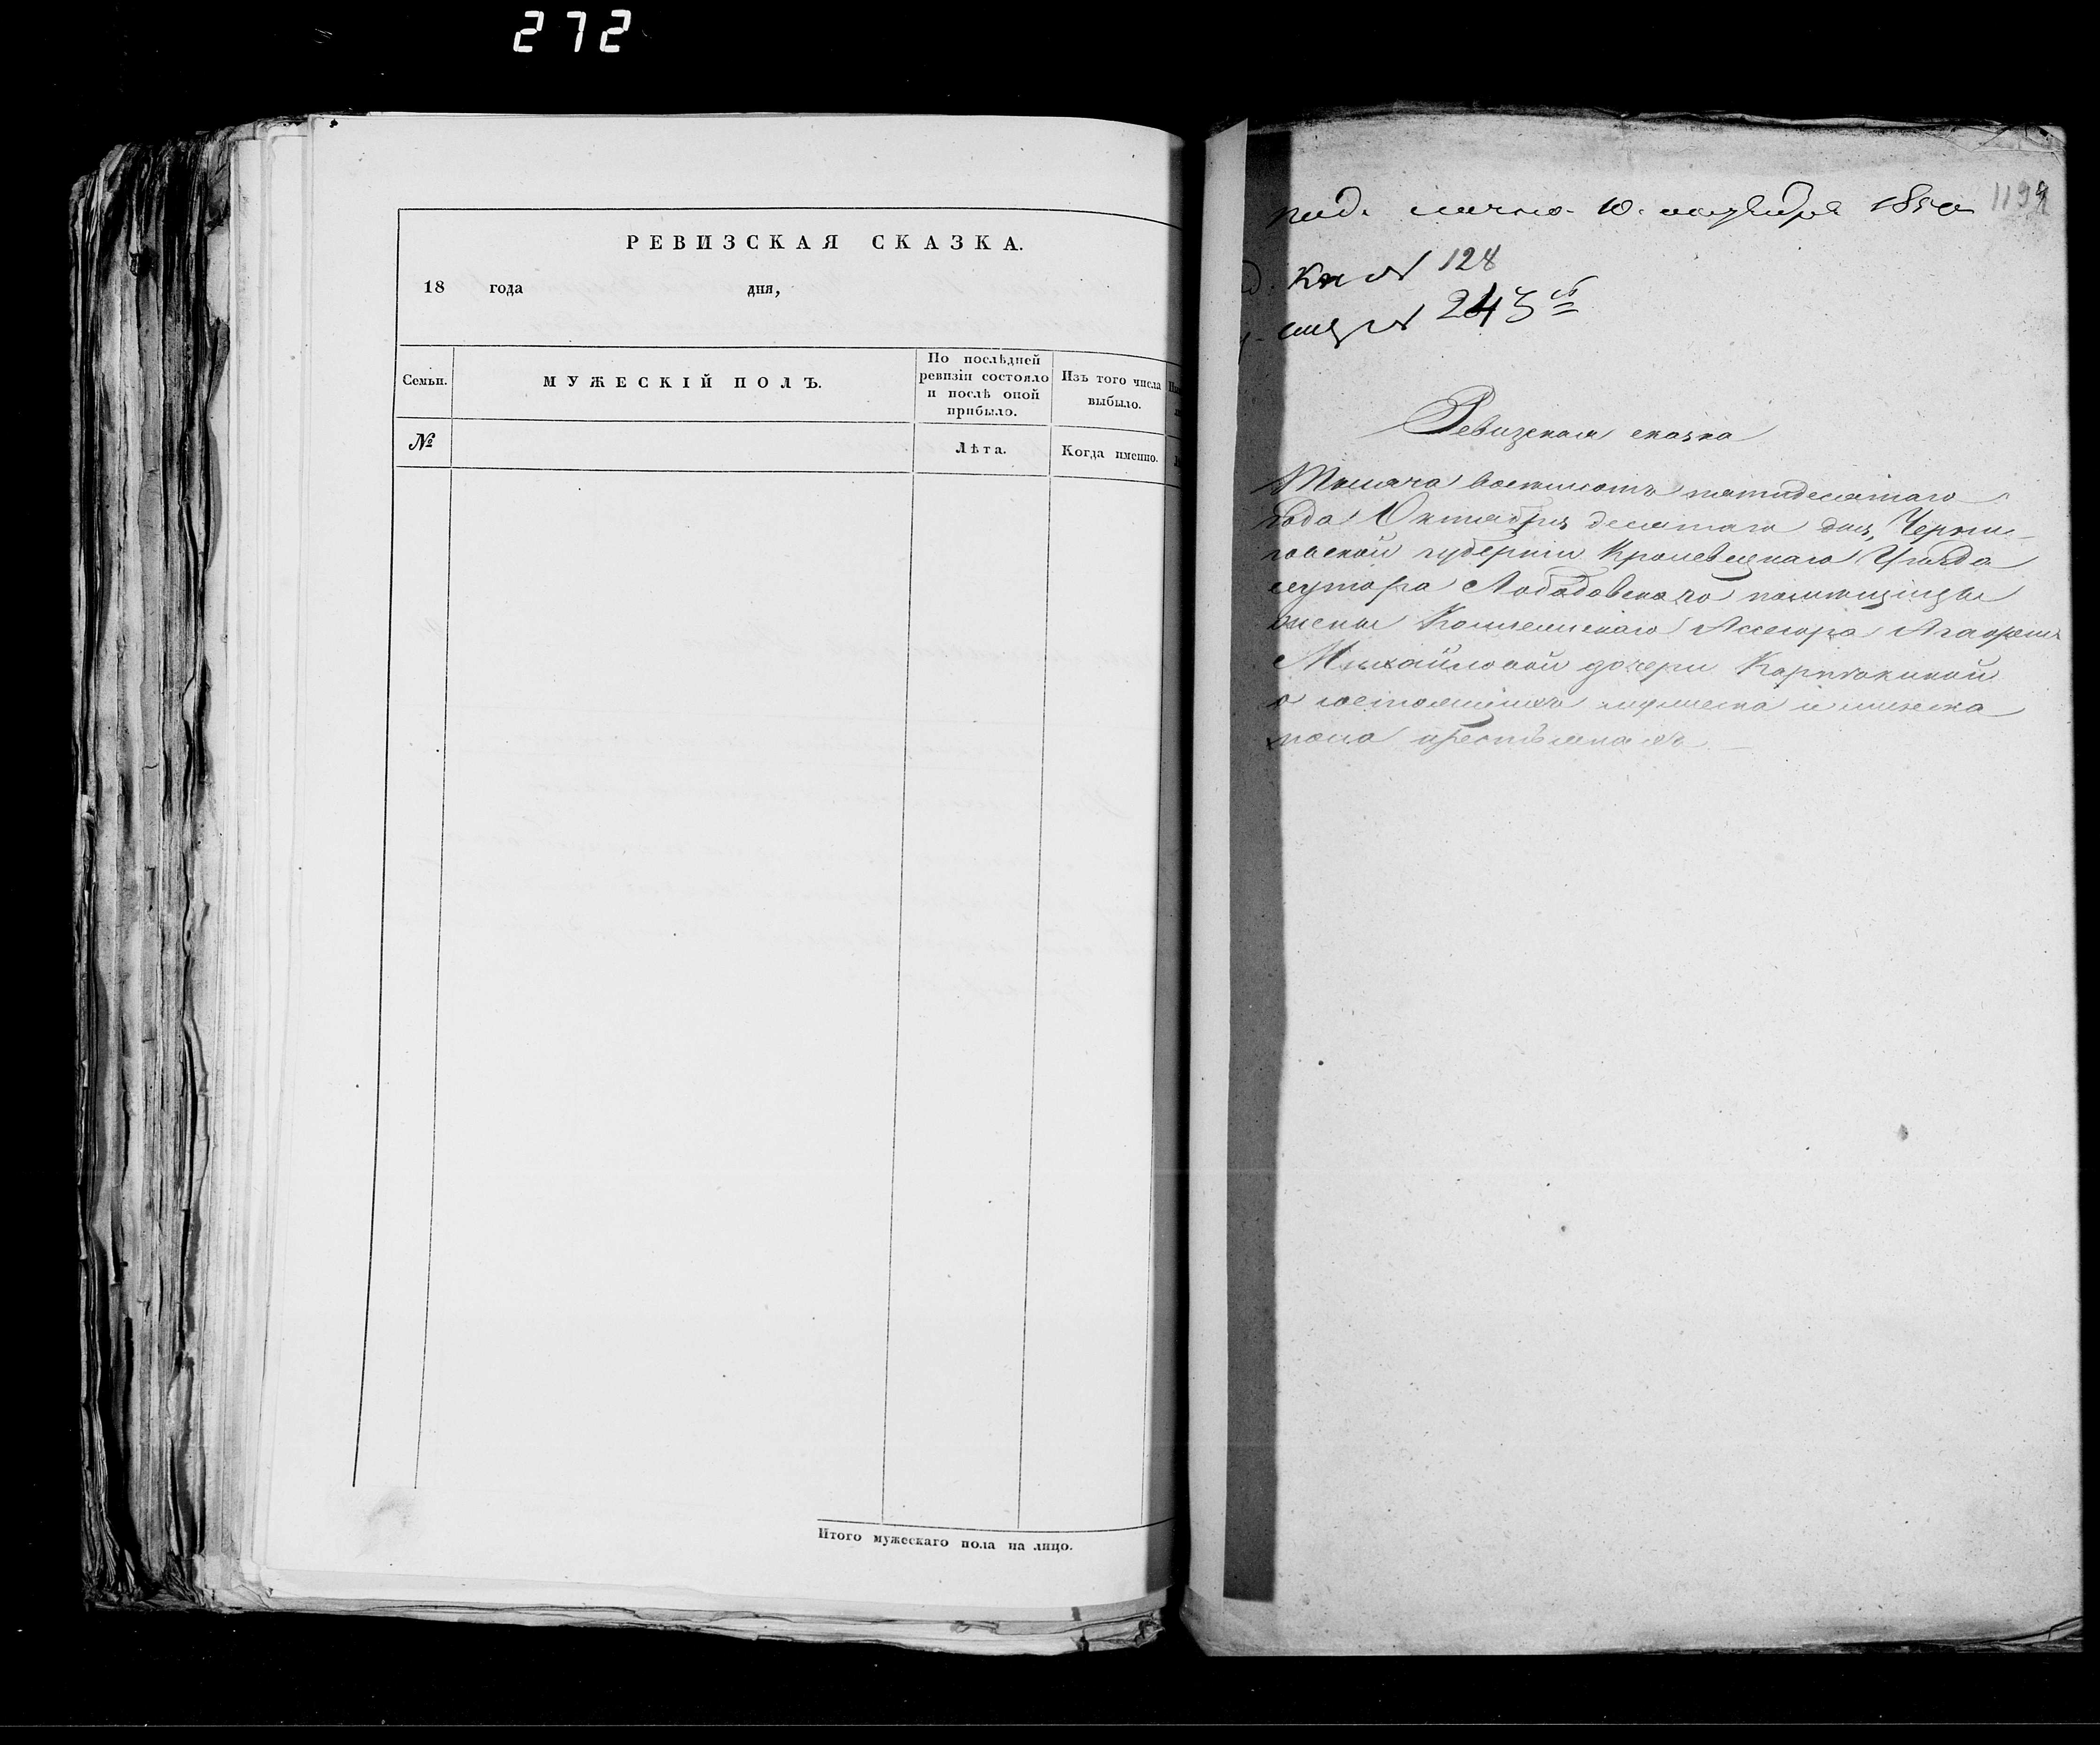 272
РЕВИЗСКАЯ СКАЗКА.
18 года дня,
Семьи.
МУЖЕСКІЙ ПОЛЪ.
По послѣдней ревизіи состояло и послѣ оной прибыло.
Изъ того числа выбыло.
№
Лѣта.
Когда именно.
Итого мужескаго пола на лицо.
под. лично. 10. октября 1850
1192
Кн № 128
№ 243
Ревизская сказка
Тысяча восемьсотъ пятидесятаго
года Октября десятаго дня, Черни-
говской губерніи Кролевецкаго Уѣзда
хутора Лободовскаго помѣщицы
жены Коллежскаго Ассесора Агафіи
Михайловой дочери
о состоящихъ мужеска и женска
пола крестьянахъ